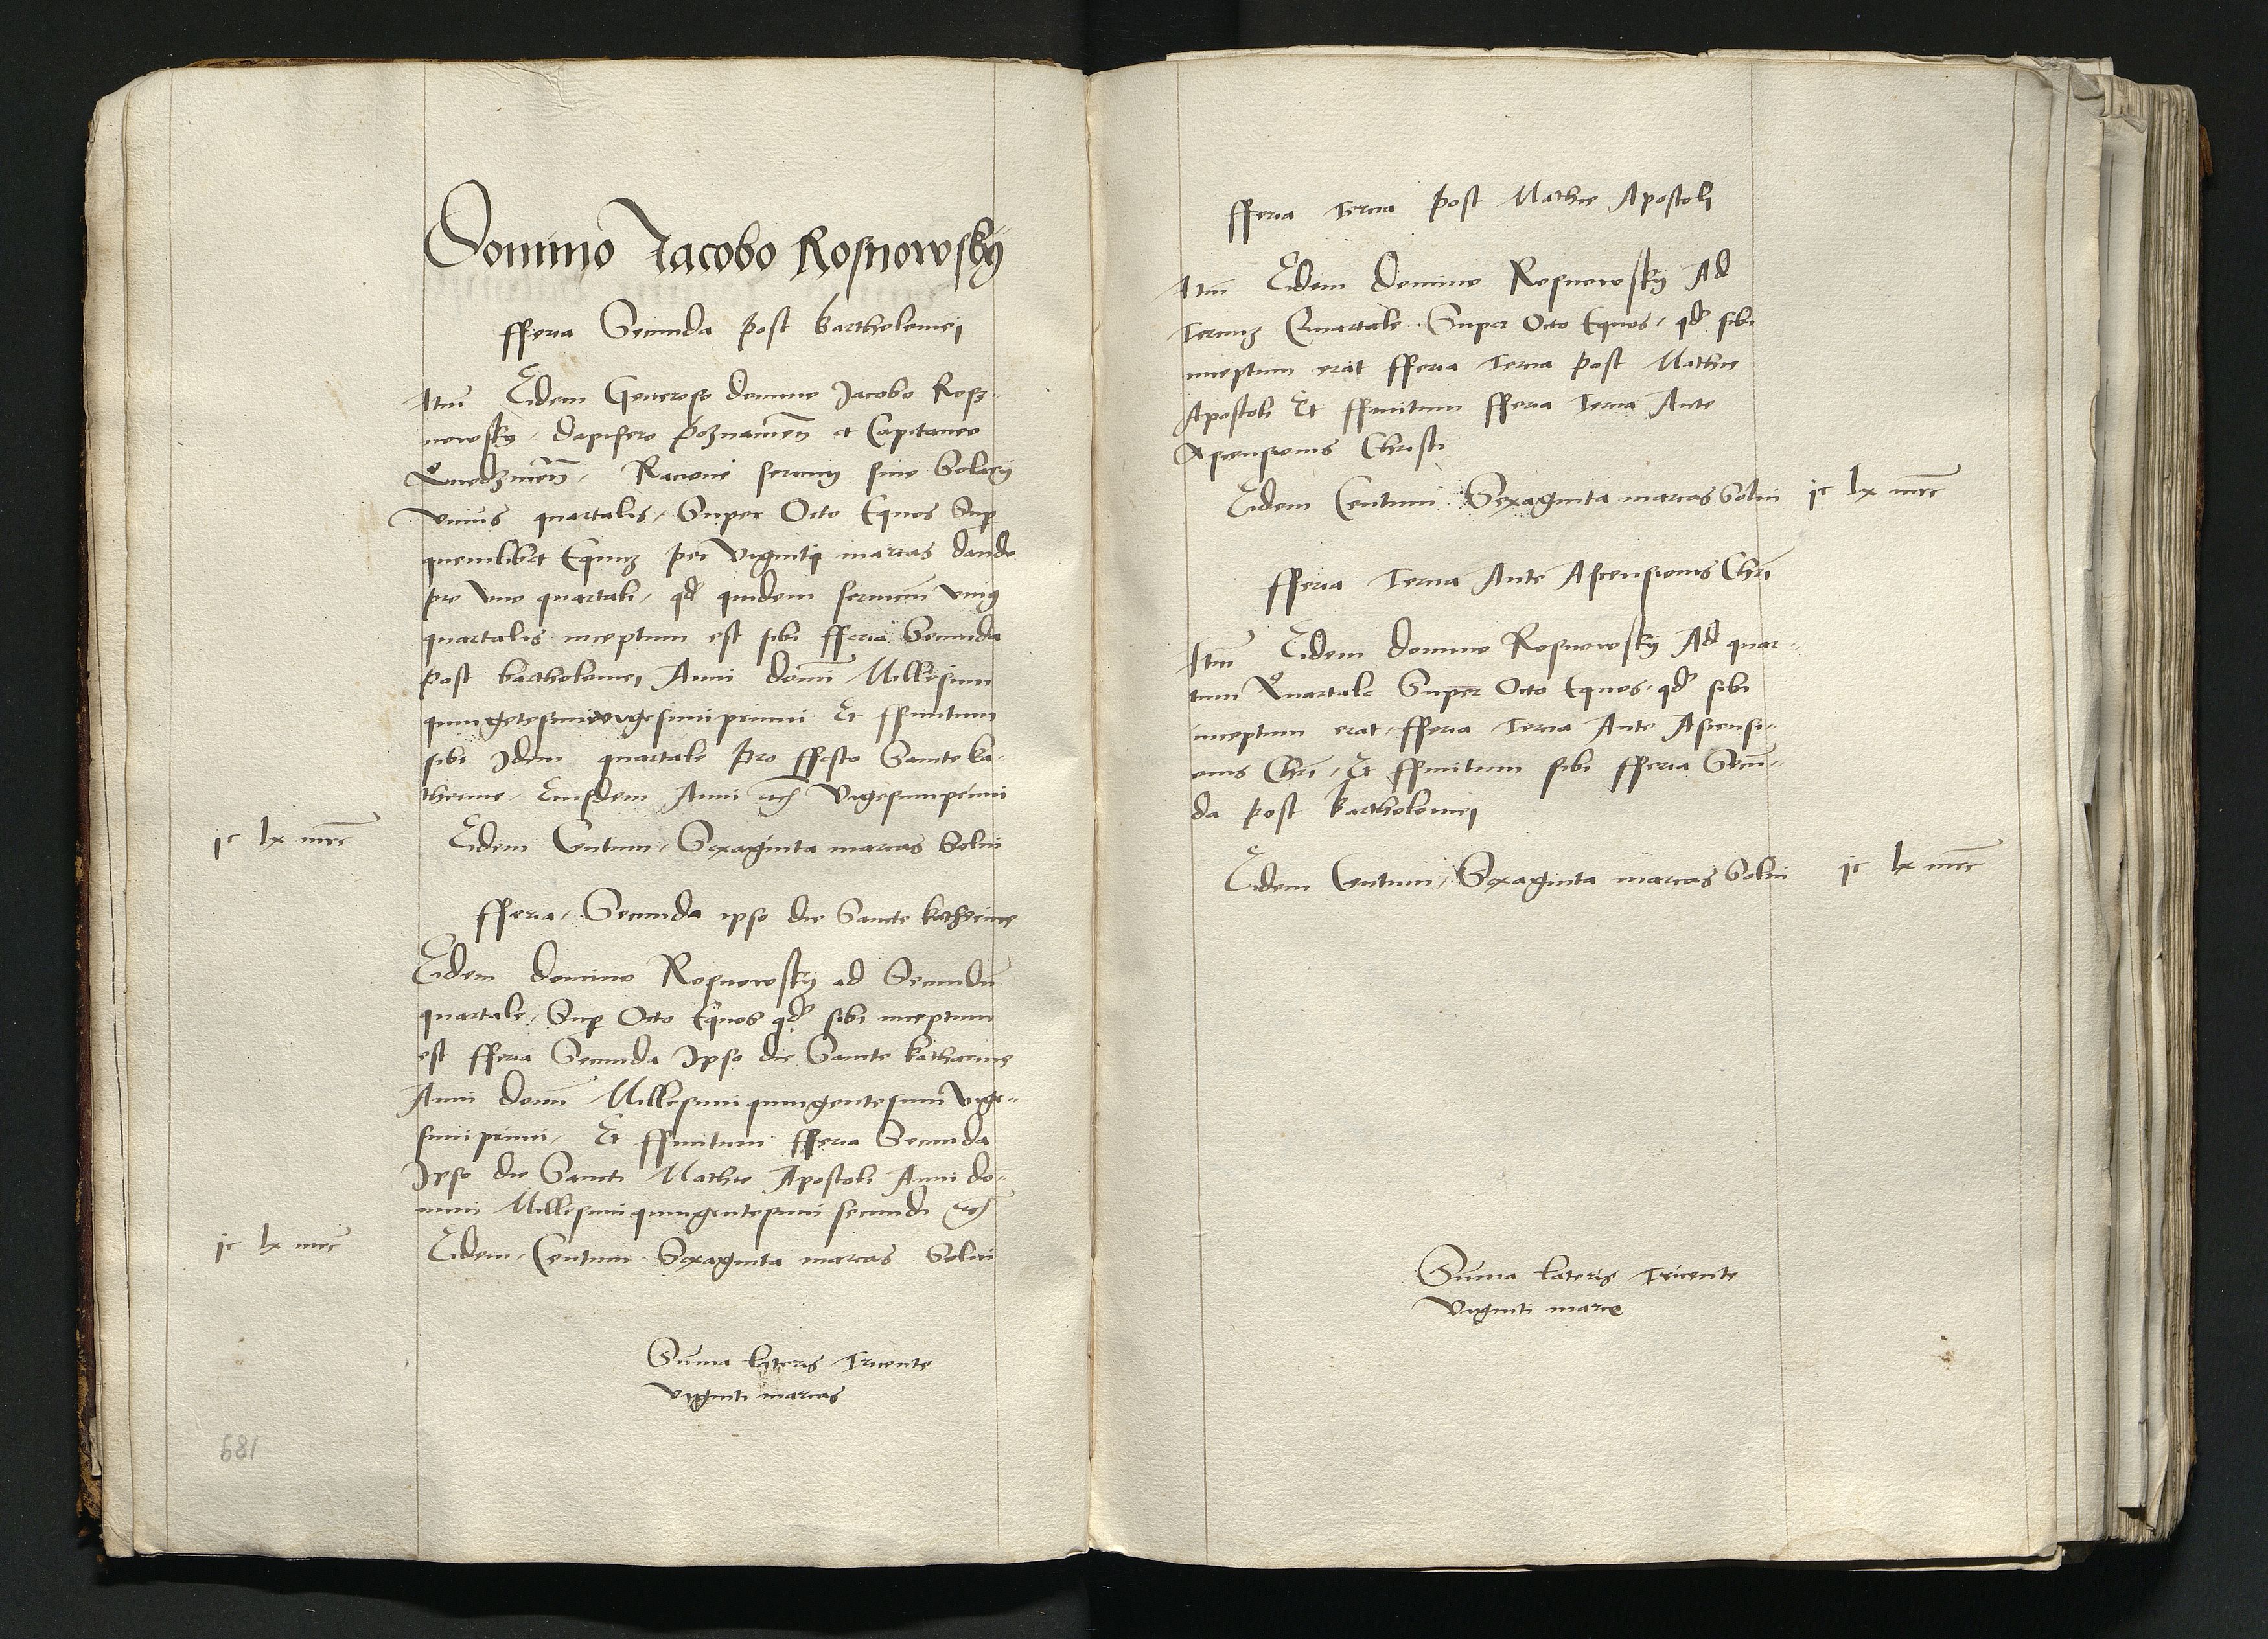 Domino Jacobo Rosnowsky
fferia Secunda post bartholomei
Itm Eidem Generoso domino Jacobo Rosz-
nowsky, dapifero poznamen et Capitaneo
Qnedzinen, Racione servicy sive Solary
unius quartalis, Super Octo Equos Sup
quemlibet Equum per viginti marcas dando
pro uno quartali, qd quidem servicium unius
quartalis inceptum est sibi fferia Secunda
post bartholomei Anni domi Millesimi
quingetesimi vigesimi primi Et ffinitum
sibi Idem quartale pro ffesto Sancte ka-
therine, Eiusdem Anni etc Vigesimi primi
jc lx mrc Eidem Centum, Sexaginta marcas Solvi
fferia, Secunda ipso die Sancte katherine
Eidem domino Rosnowsky ad Secundu
quartale, Sup Octo Equos qd sibi inceptum
est fferia Secunda Ipso die Sancte katharine
Anni domi Millesimi quingentesimi vige-
simi primi, Et ffinitum fferia Secunda
Ipso die Sancti Mathie Apostoli Anni do-
mini Millesimi quingentesimi secundi etc
jc lx mrc Eidem, Centum Sexaginta marcas Solvi
Suma lateris Tricente
viginti marcas
681
fferia Tercia post Mathie Apostoli
Itm Eidem domino Rosnowsky Ad
Tercium Quartale Super Octo Equos, qd sibi
inceptum erat fferia Tercia post Mathie
Apostoli Et ffinitum fferia Tercia Ante
Ascensionis Christi
Eidem Centum Sexaginta marcas Solvi jc lx mrc
fferia Tercia Ante Ascensionis Chri
Itm Eidem domino Rosnowsky Ad quar-
tum Quartale Super Octo Equos, qd sibi
inceptum erat, fferia Tercia Ante Ascensi-
onis Chri, Et ffinitum sibi fferia Secun-
da post bartholomei
Eidem Centum, Sexaginta marcas Solvi jc lx mrc
Suma lateris Tricente
viginti marce